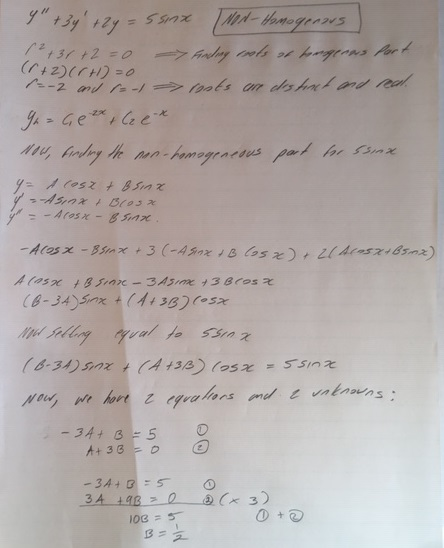 y'' + 3y' + 2y = 5 sinx NON-Homogenous
r² + 3r + 2 = 0 ⟹ Finding roots of homogenous Part
(r+2)(r+1) = 0
r=-2 and r=-1 ⟹ roots are distinct and real.
yₕ = C₁e^-2x + C₂e^-x
Now, Finding the non-homogeneous part for 5sinx
y = A cosx + B sinx
y' = -A sinx + B cosx
y'' = -A cosx - B sinx.
-Acosx - Bsinx + 3(-Asinx + B cosx) + 2(Acosx+Bsinx)
A cosx + B sinx - 3A sinx + 3B cosx
(B-3A) sinx + (A+3B) cosx
Now setting equal to 5 sinx
(B-3A) sinx + (A+3B) cosx = 5 sinx
Now, we have 2 equations and 2 unknowns:
-3A + B = 5 ①
A + 3B = 0 ②
-3A + B = 5 ①
3A + 9B = 0 ② (x 3)
10B = 5 ① + ②
B = 1/2